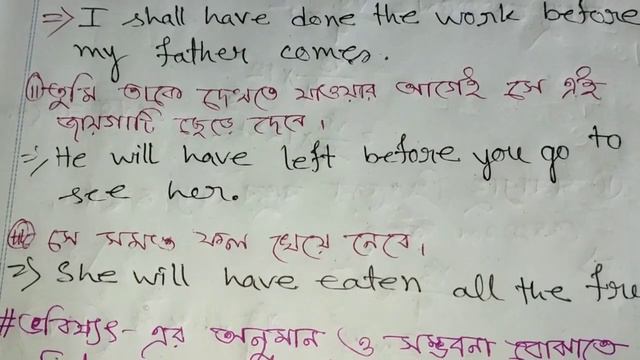 => I shall have done the work before
my father comes.
(ii) তুমি তাকে দেখতে যাওয়ার আগেই সে এই
জায়গাটি ছেড়ে দেবে।
=> He will have left before you go to
see her.
(iii) সে সমস্ত ফল খেয়ে নেবে।
=> She will have eaten all the
# ভবিষ্যৎ-এর অনুমান ও সম্ভবনা বোঝাতে